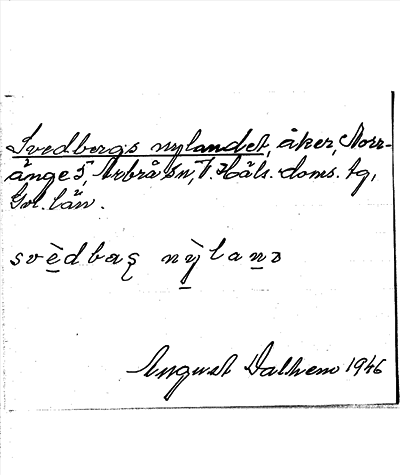 Svedbergs nylandet, åker, Norr-
ånge 5, Arbrå sn, V. Häls. doms. tg,
Gvl. län.
svèdbaş nỳlanə
August Dalhem 1946